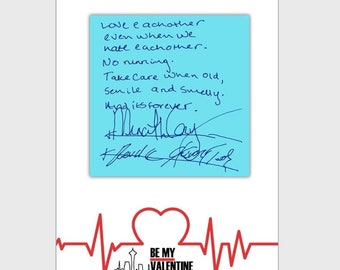 Love eachother
even when we
hate eachother.
No running.
Take care when old,
senile and smelly.
its forever.
BE MY
VALENTINE